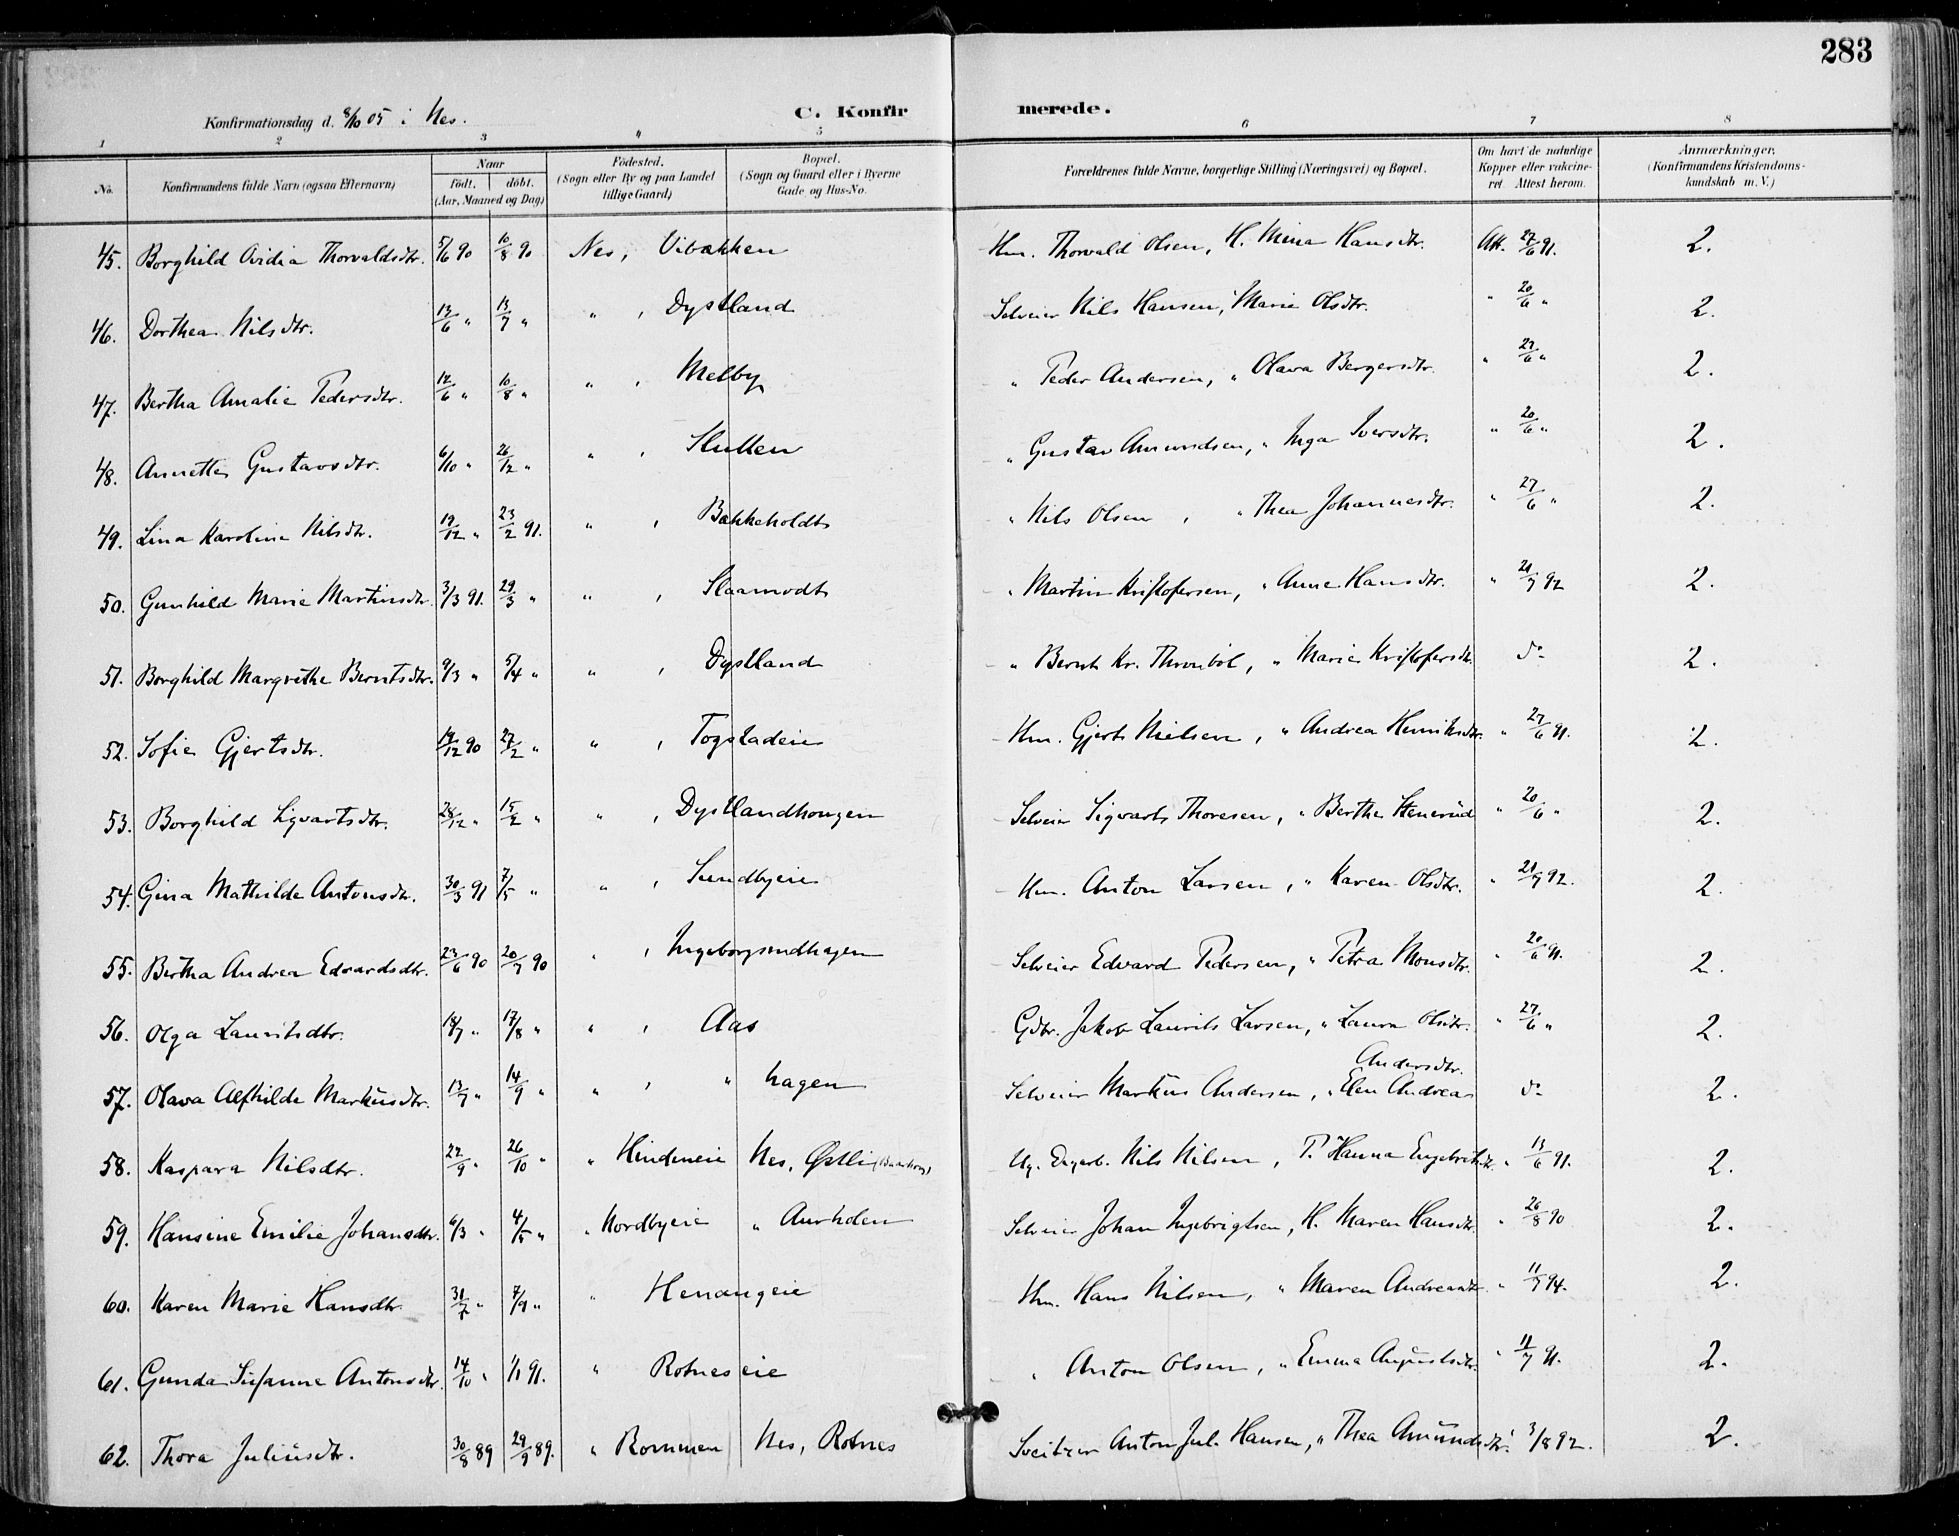 283
Konfirmationsdag d. 8/10 05 i Nes. C. Konfirmerede.
1 2 3 " 5 6 7 8
No. Konfirmandens fulde Navn (ogsaa Efternavn) Naar født. døbt. (Aar, Maaned og Dag) Fødested. (Sogn eller By og paa Landet tillige Gaard) Bopæl. (Sogn og Gaard eller i Byerne Gade og Hus-No. Forældrenes fulde Navne, borgerlige Stilling (Næringsvei) og Bopæl. Om havt de naturlige Kopper eller vakcineret. Attest herom. Anmærkninger. (Konfirmandens Kristendomskundskab m. V.)
45. Borghild Ovidia Thorvaldsdtr. 5/6 90 10/8 90 Nes, Vibakken Hm. Thorvald Olsen, H. Mina Hansdtr. Att. 27/6 91. 2.
46. Dorthea Nilsdtr. 13/6 " 13/7 " " , Dystland Selveier Nils Hansen, Marie Olsdtr. " 20/6 " 2.
47. Bertha Amalie Pedersdtr. 12/6 " 10/8 " " , Melby " Peder Andersen, " Olava Bergersdtr. " 27/6 " 2.
48. Annette Gustavsdtr. 6/10 " 26/12 " " , " Gustav Amundsen, " Inga Iversdtr. " 20/6 " 2.
49. Lina Karoline Nilsdtr. 19/12 " 23/2 91. " , Bakkeholdt " Nils Olsen , " Thea Johannesdtr. " 27/6 " 2.
50. Gunhild Marie Martinsdtr. 3/3 91. 29/3 " " , Slaamodt " Martin Kristofersen, " Anne Hansdtr. " 21/7 92 2.
51. Borghild Margrethe Berntsdtr. 9/3 " 5/4 " " , Dystland " Bernt Kr. , " Marie Kristofersdtr. do 2.
52. Sofie Gjertsdtr. 14/12 90 22/2 " " , Togstadeie Hm. Gjert Nielsen, " Andrea Henriksdtr. " 27/6 91. 2.
53. Borghild Sigvartsdtr. 28/12 " 15/2 " " , Dystlandhougen Selveier Sigvart Thoresen, " Berthe Stenerud " 20/6 " 2.
54. Gina Mathilde Antonsdtr. 30/3 91 7/5 " " , Sundbyeie Hm. Anton Larsen, " Karen Olsdtr. " 21/7 92. 2.
55. Bertha Andrea Edvardsdtr. 23/6 90 20/7 90 " , Ingeborgrudhagen Selveier Edvard Pedersen, " Petra Monsdtr. " 20/6 91. 2.
56. Olga Lauritsdtr. 18/7 " 17/8 " " , Aas Gdbr. Jakob Laurits Larsen, " Laura Olsdtr. " 27/6 " 2.
Andersdtr.
57. Olava Alfhilde Markusdtr. 13/7 " 14/9 " " , " hagen Selveier Markus Andersen, " Elen Andrea do 2.
58. Kaspara Nilsdtr. 22/9 " 26/10 " " Hindeneie Nes, Østli Ug. Nils Nilsen, P. Hanna Engebretsdtr. " 13/6 91. 2.
59. Hansine Emilie Johansdtr. 6/3 " 4/5 " " Nordbyeie " Aurholen Selveier Johan Ingebrigtsen, H. Maren Hansdtr. " 26/8 90 2.
60. Karen Marie Hansdtr. 31/7 " 7/9 " " Henangeie Hm. Hans Nilsen, " Maren Andreasdtr. " 11/7 94. 2.
61. Gunda Susanne Antonsdtr. 14/10 " 1/1 91. " Rotneseie " Anton Olsen, " Emma Augustsdtr. " 11/7 91. 2.
62. Thora Juliusdtr. 30/8 89 29/9 89. " Rommen Nes, Rotnes Sveitzer Anton Jul. Hansen, " Thea Amundsdtr. " 3/8 92. 2.